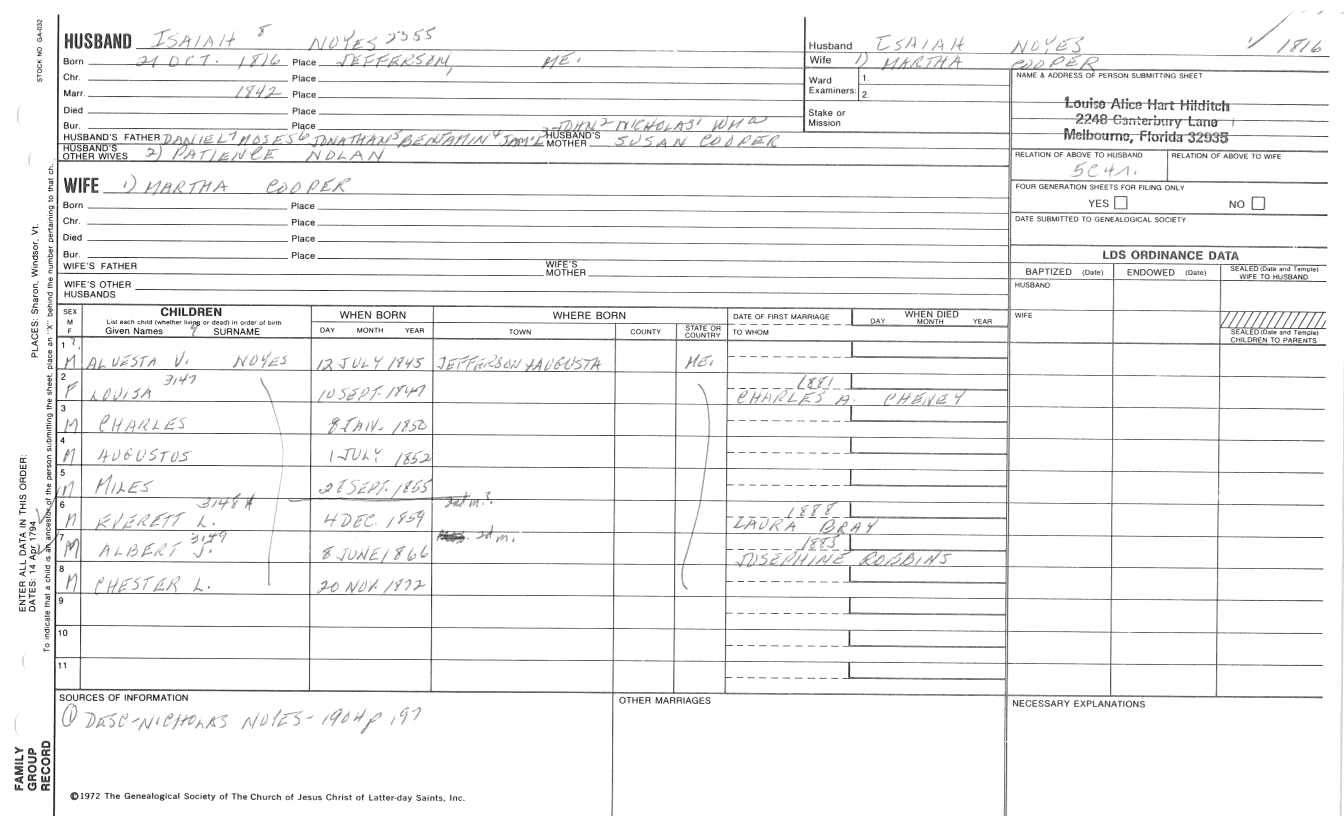 STOCK NO GA-032
HUSBAND ISAIAH 8 NOYES 2355
Born 21 OCT. 1816 Place JEFFERSON, ME.
Chr. Place
Marr. 1842 Place
Died Place
Bur. Place
JOHN 2 NICHOLAS 1 WM
HUSBAND'S FATHER DANIEL 7 MOSES 6 JONATHAN 5 BENJAMIN 4 HUSBAND'S MOTHER SUSAN COOPER
HUSBAND'S OTHER WIVES 2) PATIENCE NOLAN
WIFE 1) MARTHA COOPER
Born Place
Chr. Place
Died Place
Bur. Place
WIFE'S FATHER WIFE'S MOTHER
WIFE'S OTHER HUSBANDS
Husband ISAIAH NOYES 1816
Wife 1) MARTHA COOPER
Ward 1.
Examiners: 2.
Stake or Mission
NAME & ADDRESS OF PERSON SUBMITTING SHEET
Louise Alice Hart Hilditch
2248 Canterbury Lane
Melbourne, Florida 32935
RELATION OF ABOVE TO HUSBAND RELATION OF ABOVE TO WIFE
5C4R.
FOUR GENERATION SHEETS FOR FILING ONLY
YES NO
DATE SUBMITTED TO GENEALOGICAL SOCIETY
LDS ORDINANCE DATA
BAPTIZED (Date) ENDOWED (Date) SEALED (Date and Temple) WIFE TO HUSBAND
HUSBAND
WIFE
SEALED (Date and Temple) CHILDREN TO PARENTS
SEX M F
CHILDREN
List each child (whether living or dead) in order of birth
Given Names SURNAME
WHEN BORN
DAY MONTH YEAR
WHERE BORN
TOWN COUNTY STATE OR COUNTRY
DATE OF FIRST MARRIAGE
TO WHOM
WHEN DIED
DAY MONTH YEAR
1 M ALVESTA V. NOYES 12 JULY 1845 JEFFERSON & AUGUSTA ME.
2 F LOUISA 3147 10 SEPT. 1847 1881 CHARLES A. CHENEY
3 M CHARLES 8 JAN. 1850
4 M AUGUSTUS 1 JULY 1852
5 M MILES 28 SEPT. 1855
6 M EVERETT L. 3148 4 DEC. 1859 2d m.? 1888 LAURA BRAY
7 M ALBERT J. 3149 8 JUNE 1866 2d m. 1885 JOSEPHINE ROBBINS
8 M CHESTER L. 20 NOV. 1872
9
10
11
SOURCES OF INFORMATION
① DESC-NICHOLAS NOYES-1904 p 197
OTHER MARRIAGES
NECESSARY EXPLANATIONS
©1972 The Genealogical Society of The Church of Jesus Christ of Latter-day Saints, Inc.
PLACES: Sharon, Windsor, Vt.
ENTER ALL DATA IN THIS ORDER:
DATES: 14 Apr 1794
To indicate that a child is an ancestor of the person submitting the sheet, place an "X" behind the number pertaining to that ch.
FAMILY
GROUP
RECORD